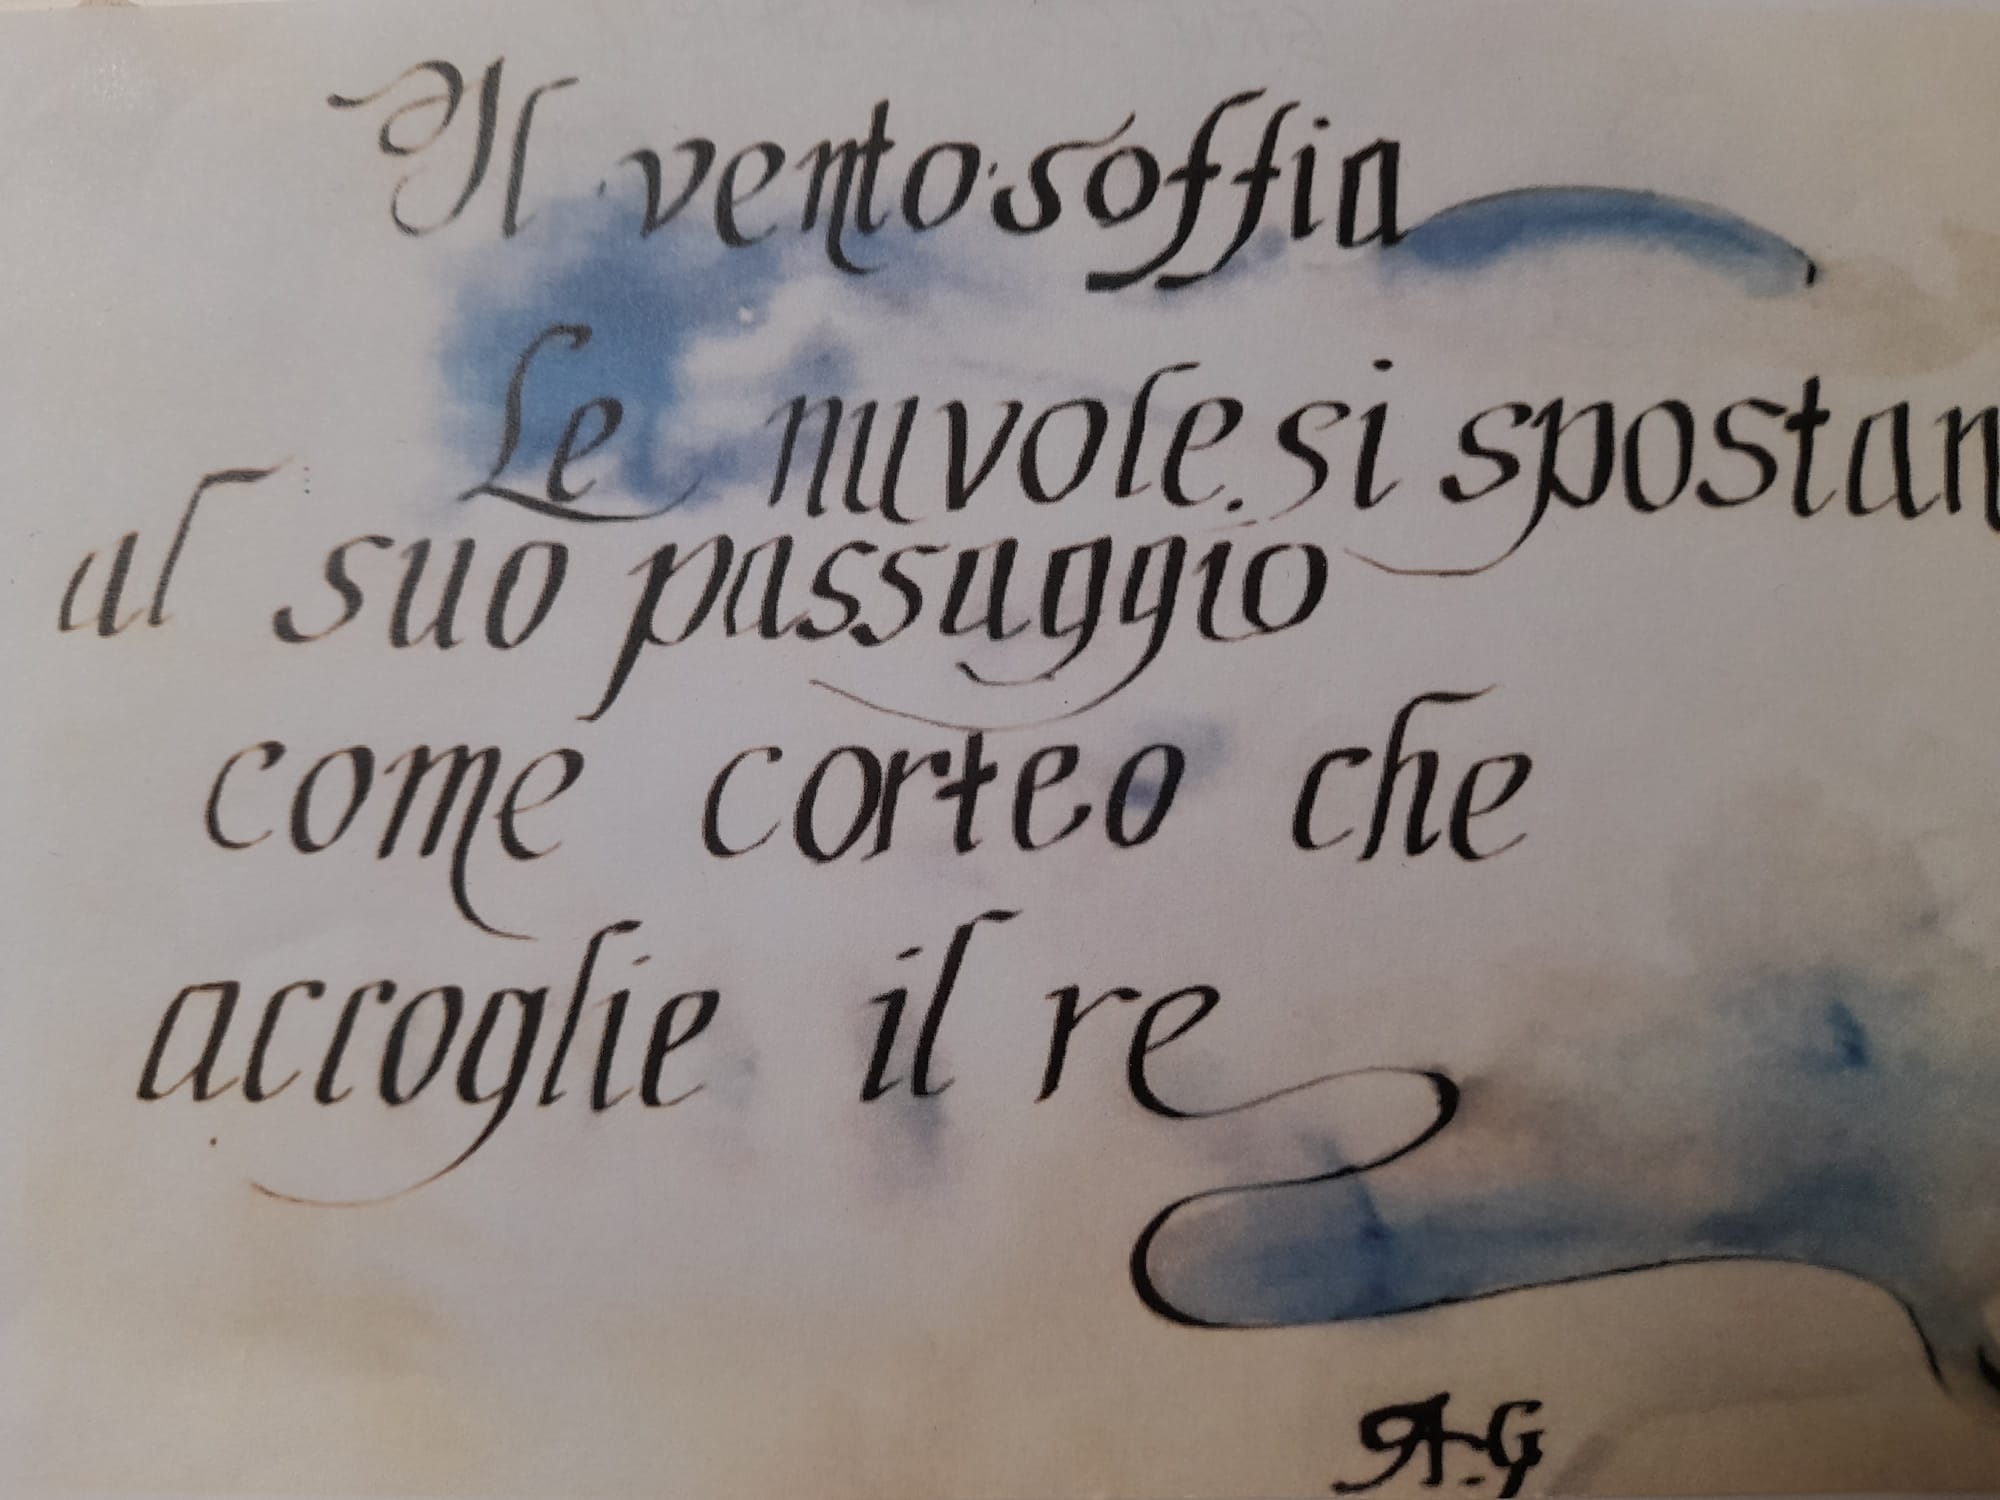 Il vento soffia
Le nuvole si spostan
al suo passaggio
come corteo che
accoglie il re
A.G